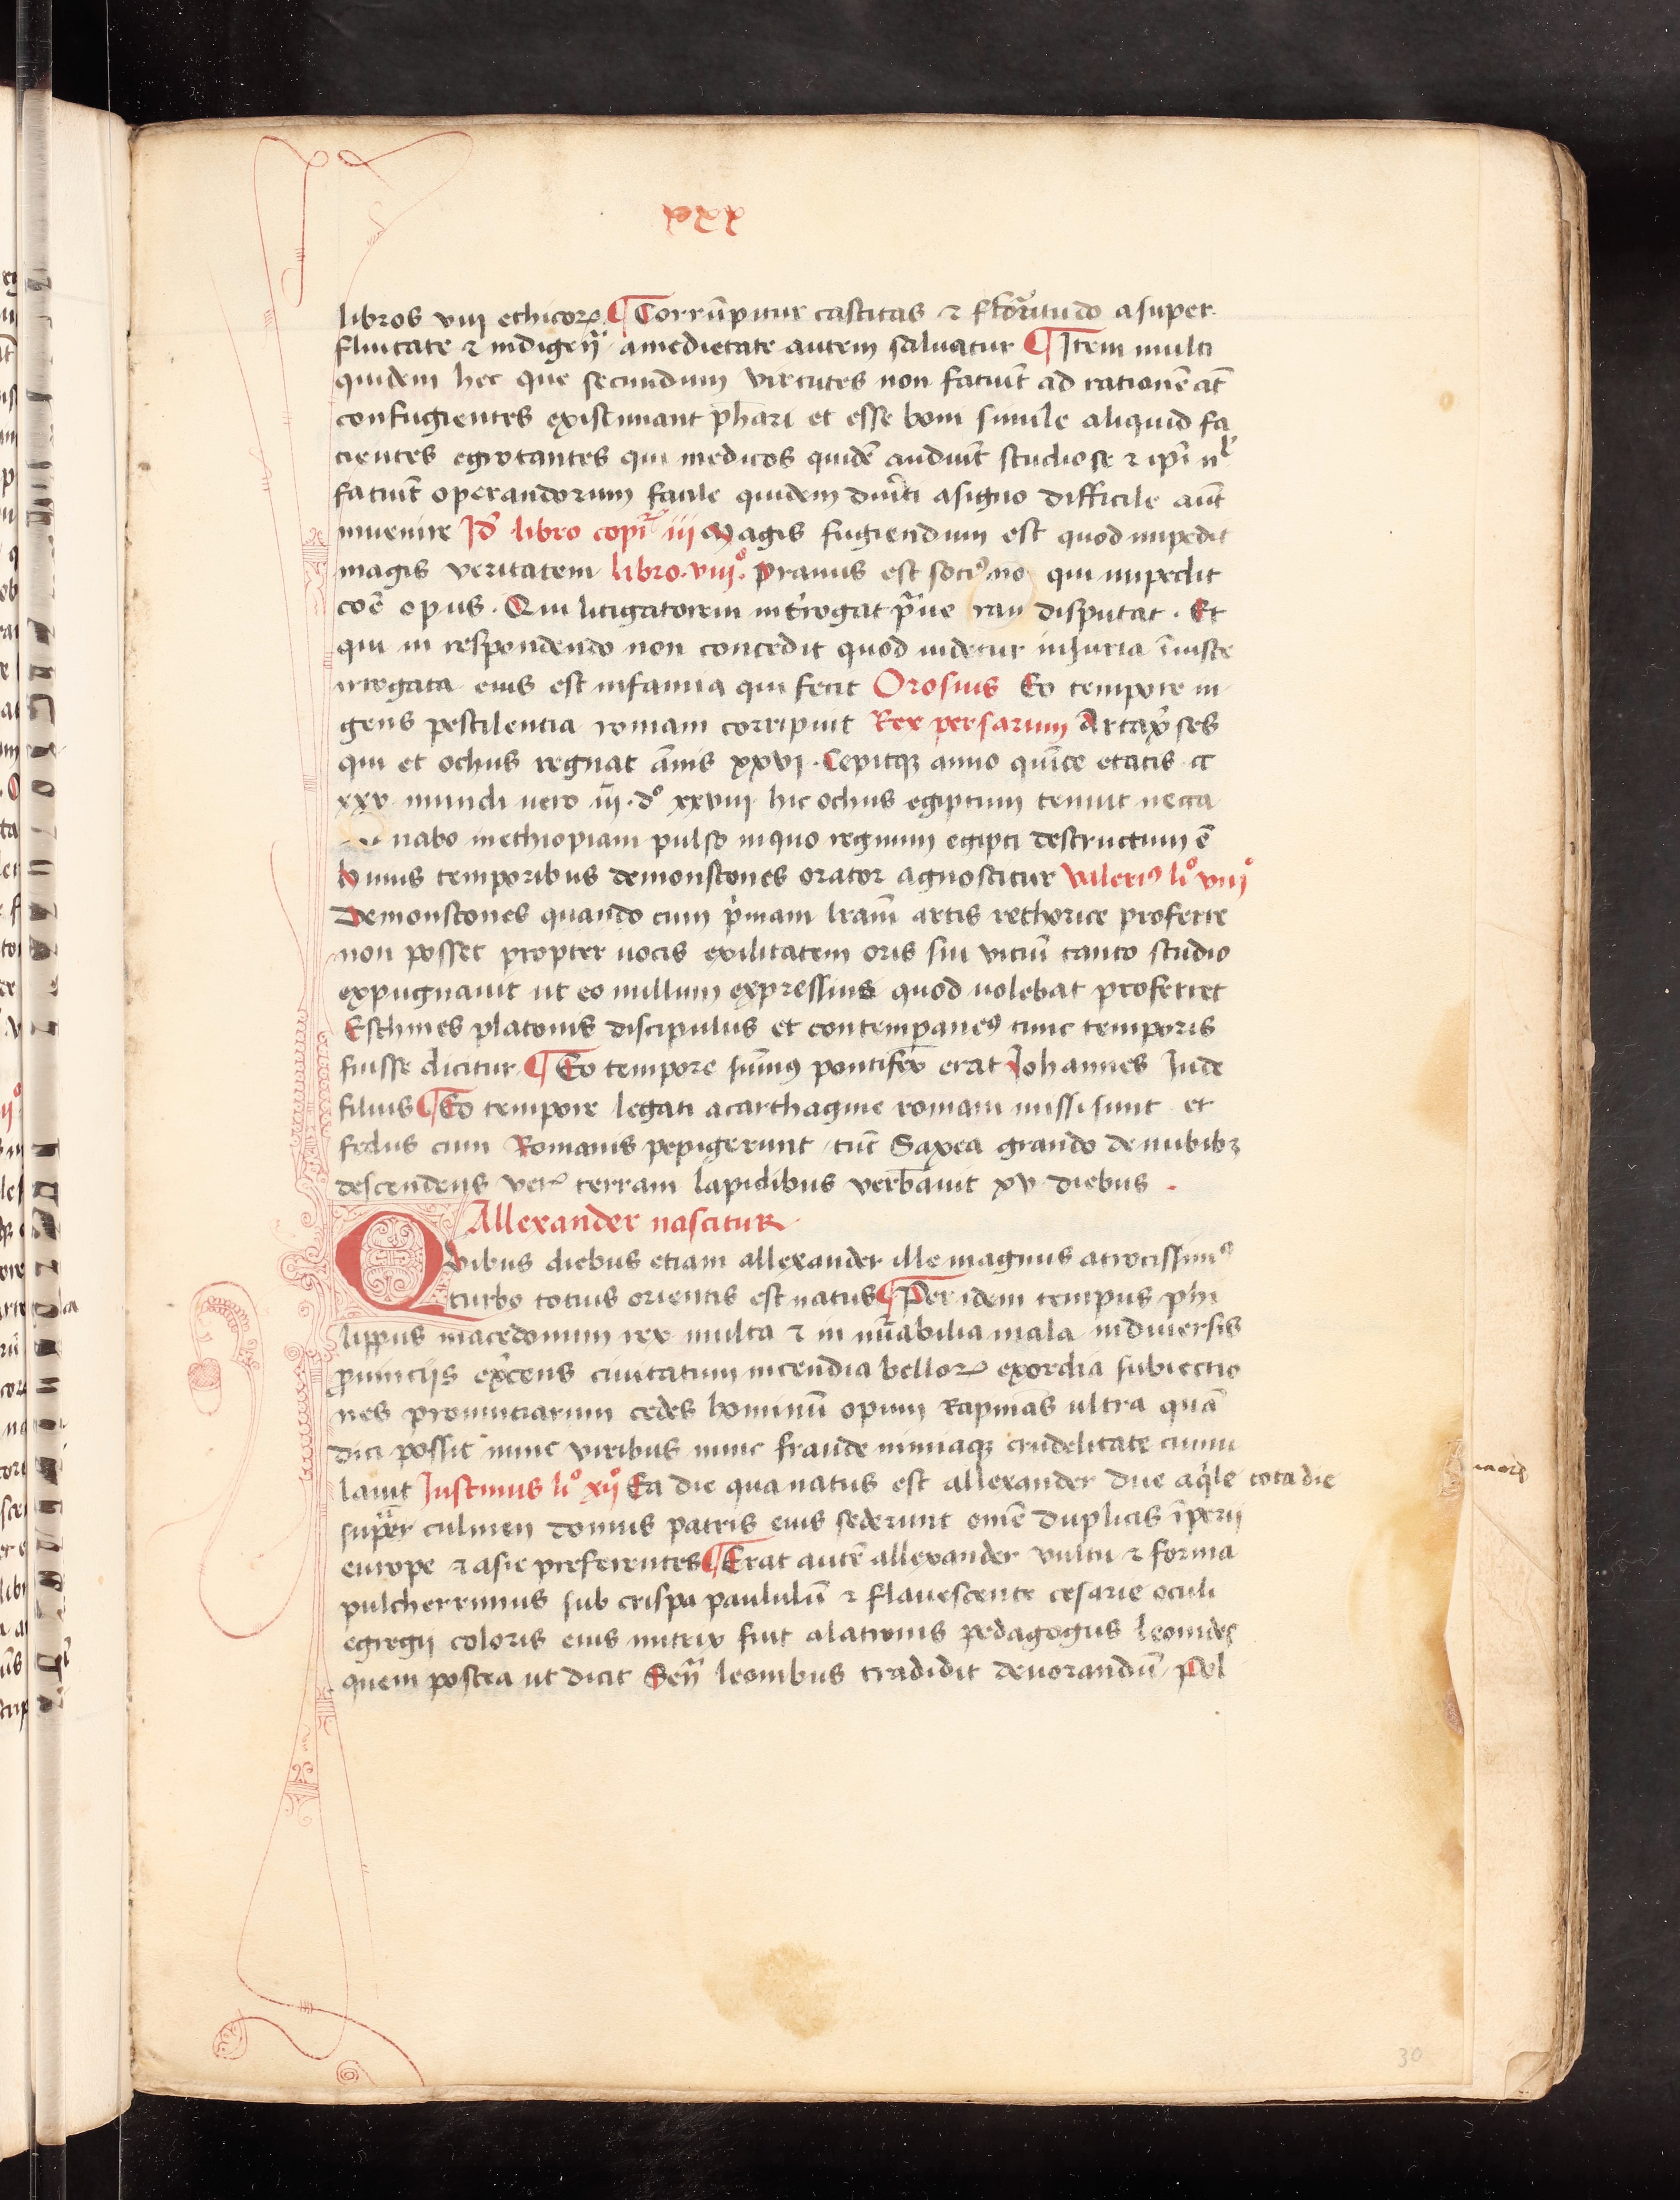 xxx
libros viii ethicoꝝ ¶ Corrūpitur castitas ⁊ fortitudo a super
fluitate ⁊ indigen̄ a medietate autem saluatur ¶ Item multi
quidem hec que secundum virtutes non faciūt ad rationē at̄
confugientes existimant ph̄ari et esse boni simile aliquid fa
cientes egrotantes qui medicos quidē audiūt studiose ⁊ ip̄i nl̄
faciūt operandorum facile quidem diu͛ti a signo difficile aut̄
inuenire Id̄ libro topi͛ iii Magis fugiendum est quod impedit
magis veritatem libro viiiº prauus est soci⁹ nō qui impedit
coē opus . Qui litigatorem int͛rogat p͛ue disputat . Et
qui in respondendo non concedit quod uidetur iniuria īiuste
irrogata eius est infamia qui fecit Orosius Eo tempore in
gens pestilentia romam corripuit Rex persarum Artax͛ses
qui et ochus regnat ānis xxvi . Cepitqꝫ anno quīte etatis
xxv mundi uero . xxviii hic ochus egiptum tenuit necta
nabo in ethiopiam pulso in quo regnum egipti destructum ē
huius temporibus demonstones orator agnoscitur Valeri⁹ liº viiiº
Demonstones quando cum p͛mam lr̄am artis rethorice proferre
non posset propter uocis exilitatem oris sui vitiū tanto studio
expugnauit ut eo nullum expressius quod uolebat proferret
Eschines platonis discipulus et contempꝑane⁹ tunc temporis
fuisse dicitur ¶ Eo tempore sum̄⁹ pontifex erat Iohannes Iude
filius ¶ Eo tempore legati a carthagine romam missi sunt et
fedus cum Romanis pepigerunt tūc Saxea grando de nubibꝫ
descendens veꝝ terram lapidibus verb͛auit xv diebus .
Allexander nascitur
Qvibus diebus etiam allexander ille magnus atrocissim⁹
turbo totius orientis est natus ¶ Per idem tempus phi
lippus macedonum rex multa ⁊ in nu͛abilia mala in diuersis
ꝓuinciis ex͛cens ciuitatum incendia belloꝝ exordia subiectio
nes prouinciarum cedes hominū opum rapinas ultra quā
dici possit nunc viribus nunc fraude nimiaqꝫ crudelitate cumu
lauit Iustinus liº xijº Ea die qua natus est allexander due aq͛le tota die
sup͛ culmen domus patris eius sederunt omē duplicis īperii
europe ⁊ asie preferentes ¶ Erat autē allexander vultu ⁊ forma
pulcherrimus sub crispa paululū ⁊ flauescente cesarie oculi
egregij coloris eius nutrix fuit alatrinis pedagogus leonides
quem postea ut dicit Sen̄ leonibus tradidit deuorandū Pel
30